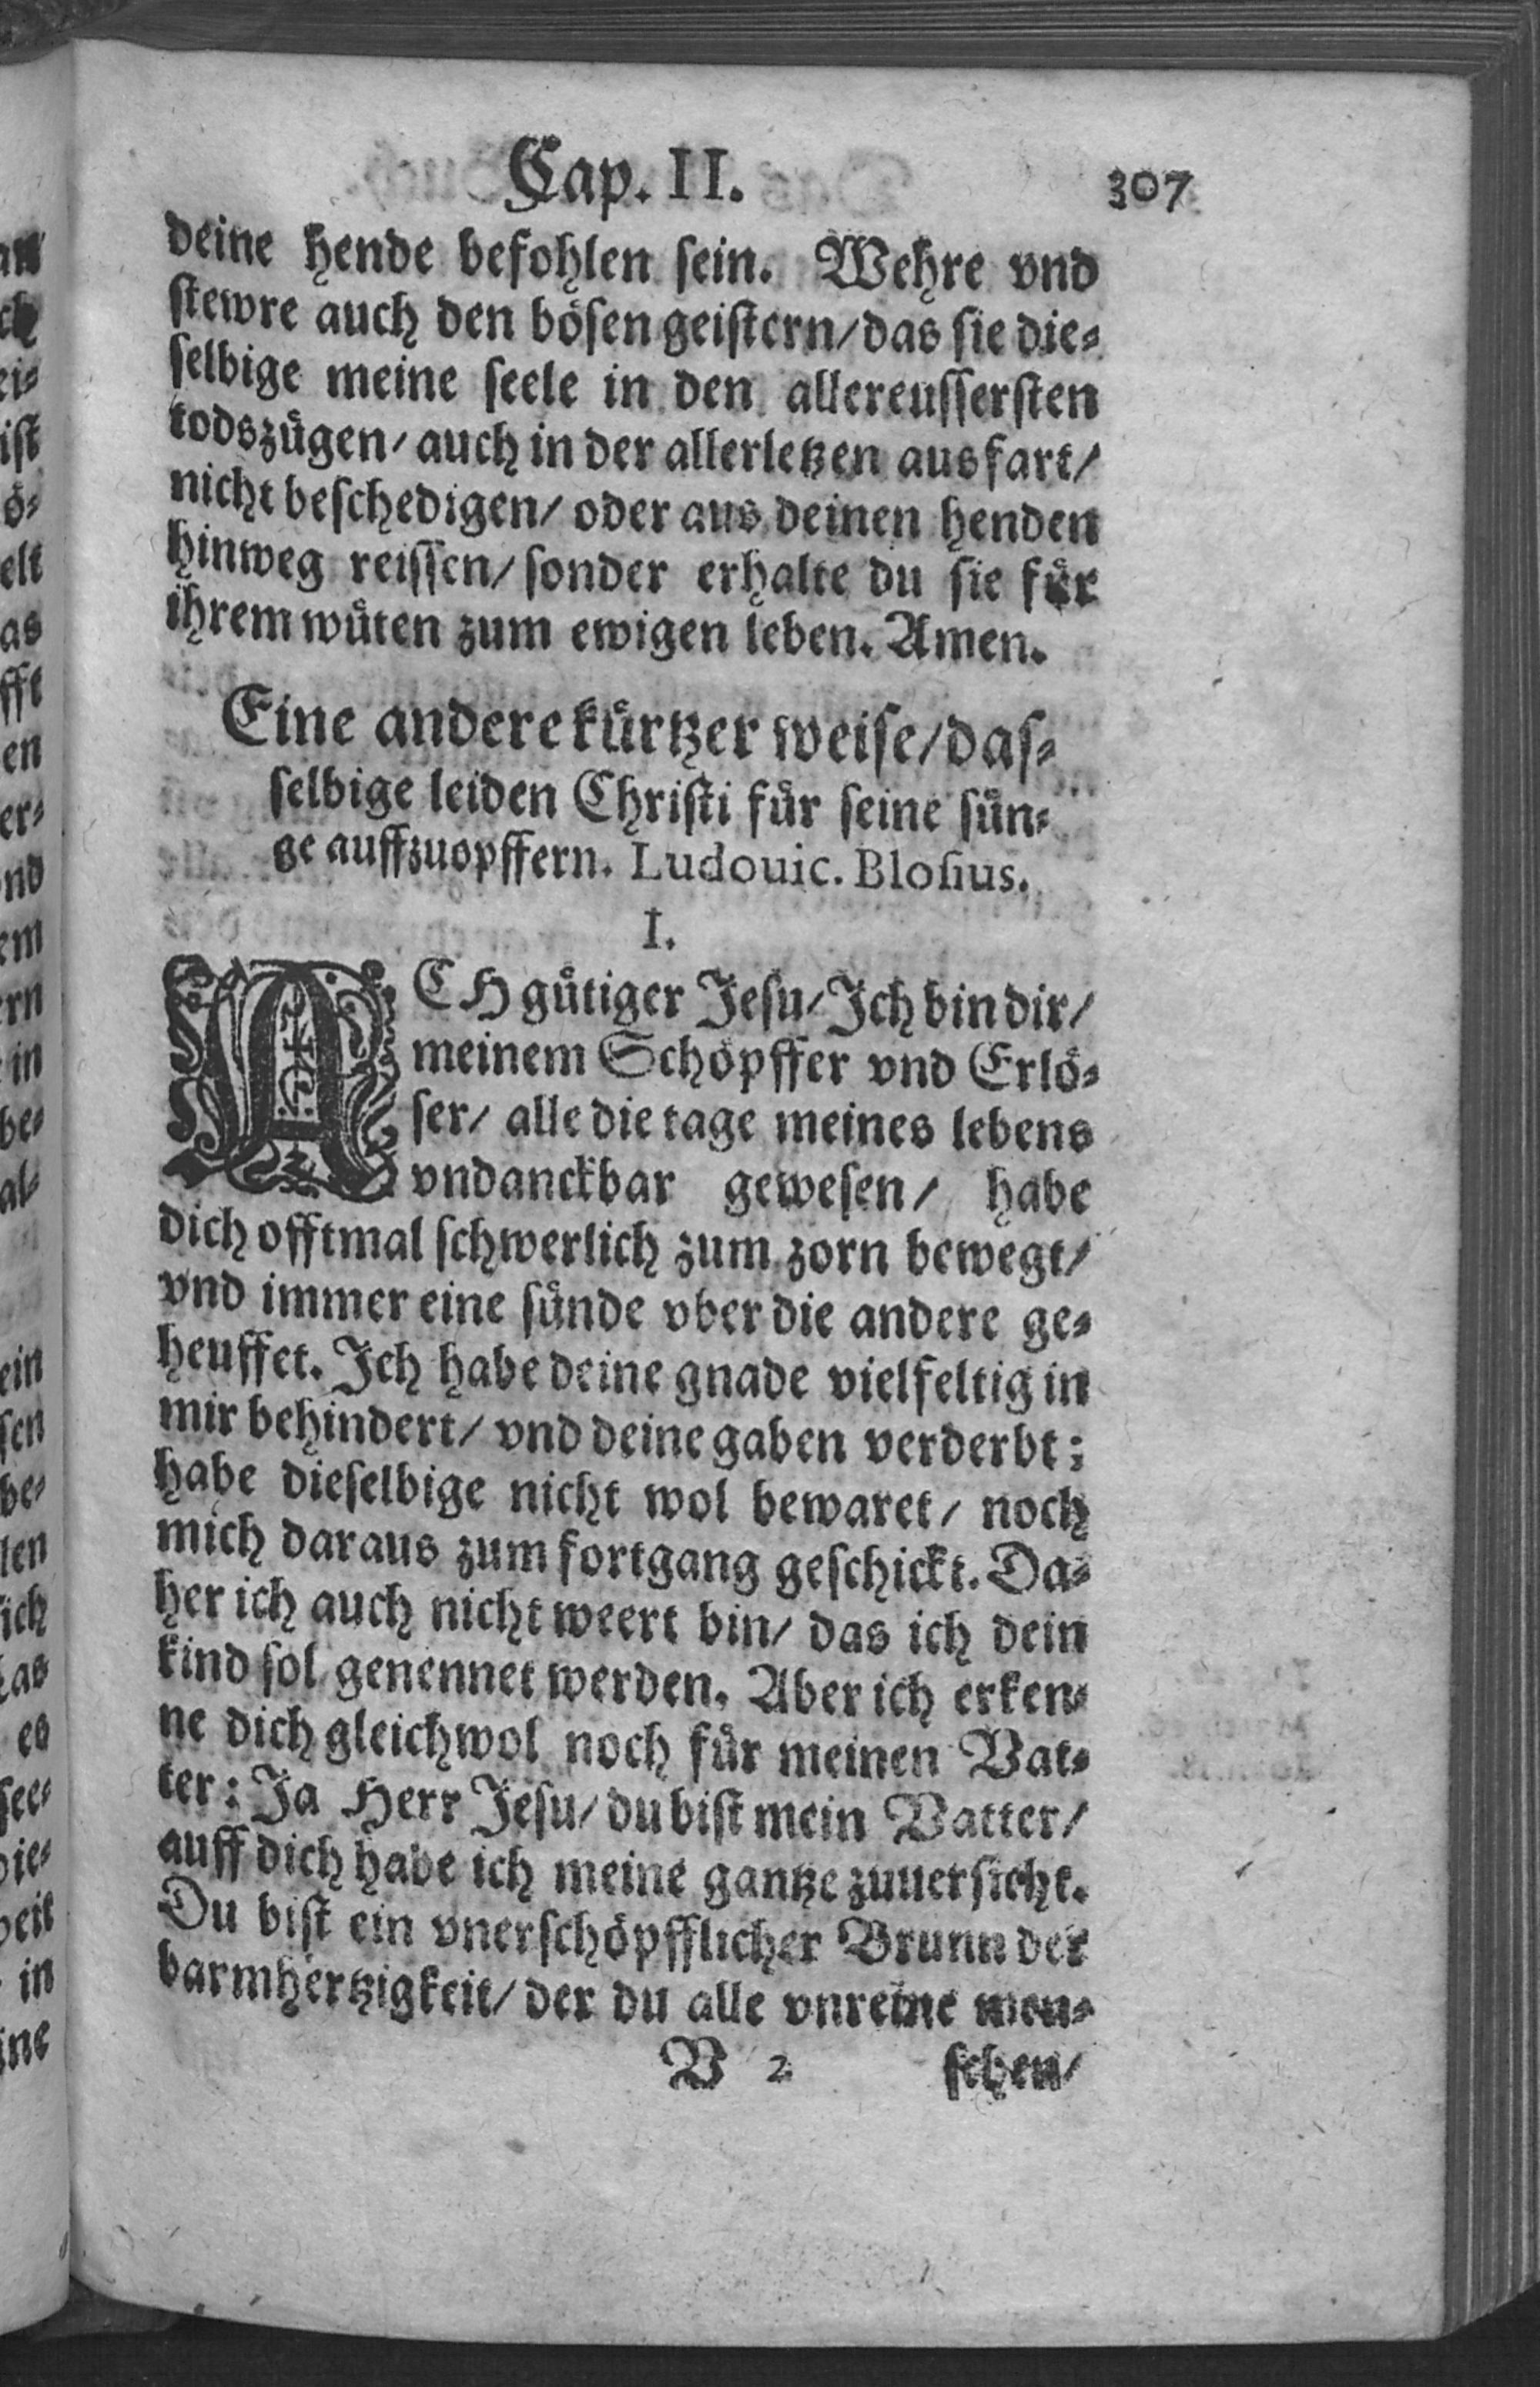 Cap. II. 307
deine hende befohlen sein. Wehre vnd
stewre auch den bösen geistern/ das sie die-
selbige meine seele in den allereussersten
todszügen/ auch in der allerletzen ausfart/
nicht beschedigen/ oder aus deinen henden
hinweg reissen/ sonder erhalte du sie für
ihrem wüten zum ewigen leben. Amen.
Eine andere kürtzer weise/ das-
selbige leiden Christi für seine sün-
ge auffzuopffern. Ludouic. Blosius.
I.
ACH gütiger Jesu/ Ich bin dir/
meinem Schöpffer vnd Erlö-
ser/ alle die tage meines lebens
vndanckbar gewesen/ habe
dich offtmal schwerlich zum zorn bewegt/
vnd immer eine sünde vber die andere ge-
heuffet. Ich habe deine gnade vielfeltig in
mir behindert/ vnd deine gaben verderbt:
habe dieselbige nicht wol bewaret/ noch
mich daraus zum fortgang geschickt. Da-
her ich auch nicht weert bin/ das ich dein
kind sol genennet werden. Aber ich erken-
ne dich gleichwol noch für meinen Vat-
ter: Ja Herr Jesu/ du bist mein Vatter/
auff dich habe ich meine gantze zuuersicht.
Du bist ein vnerschöpfflicher Brunn der
barmhertzigkeit/ der du alle vnreine men-
V 2 schen/